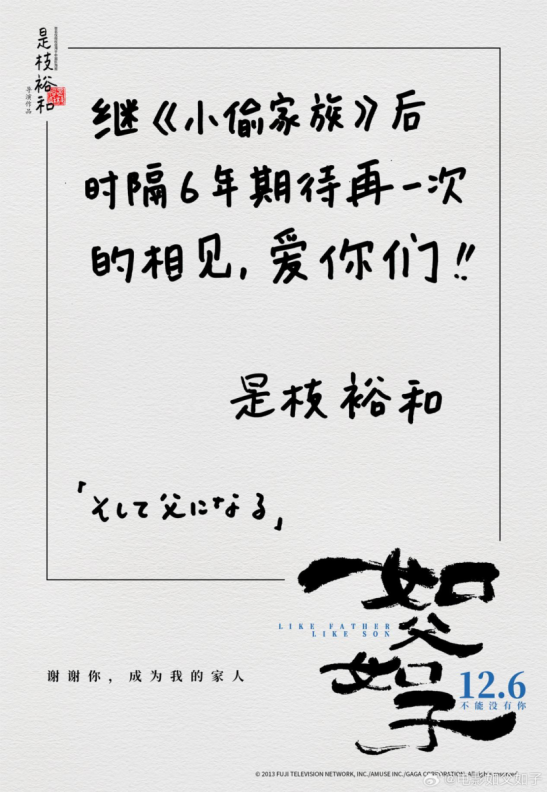 是枝裕和
导演作品
继《小偷家族》后
时隔6年期待再一次
的相见，爱你们!!
是枝裕和
「そして父になる」
如父如子
LIKE FATHER
LIKE SON
12.6
不能没有你
谢谢你，成为我的家人
© 2013 FUJI TELEVISION NETWORK, INC./AMUSE INC./GAGA CORPORATION. All rights reserved.
@电影如父如子